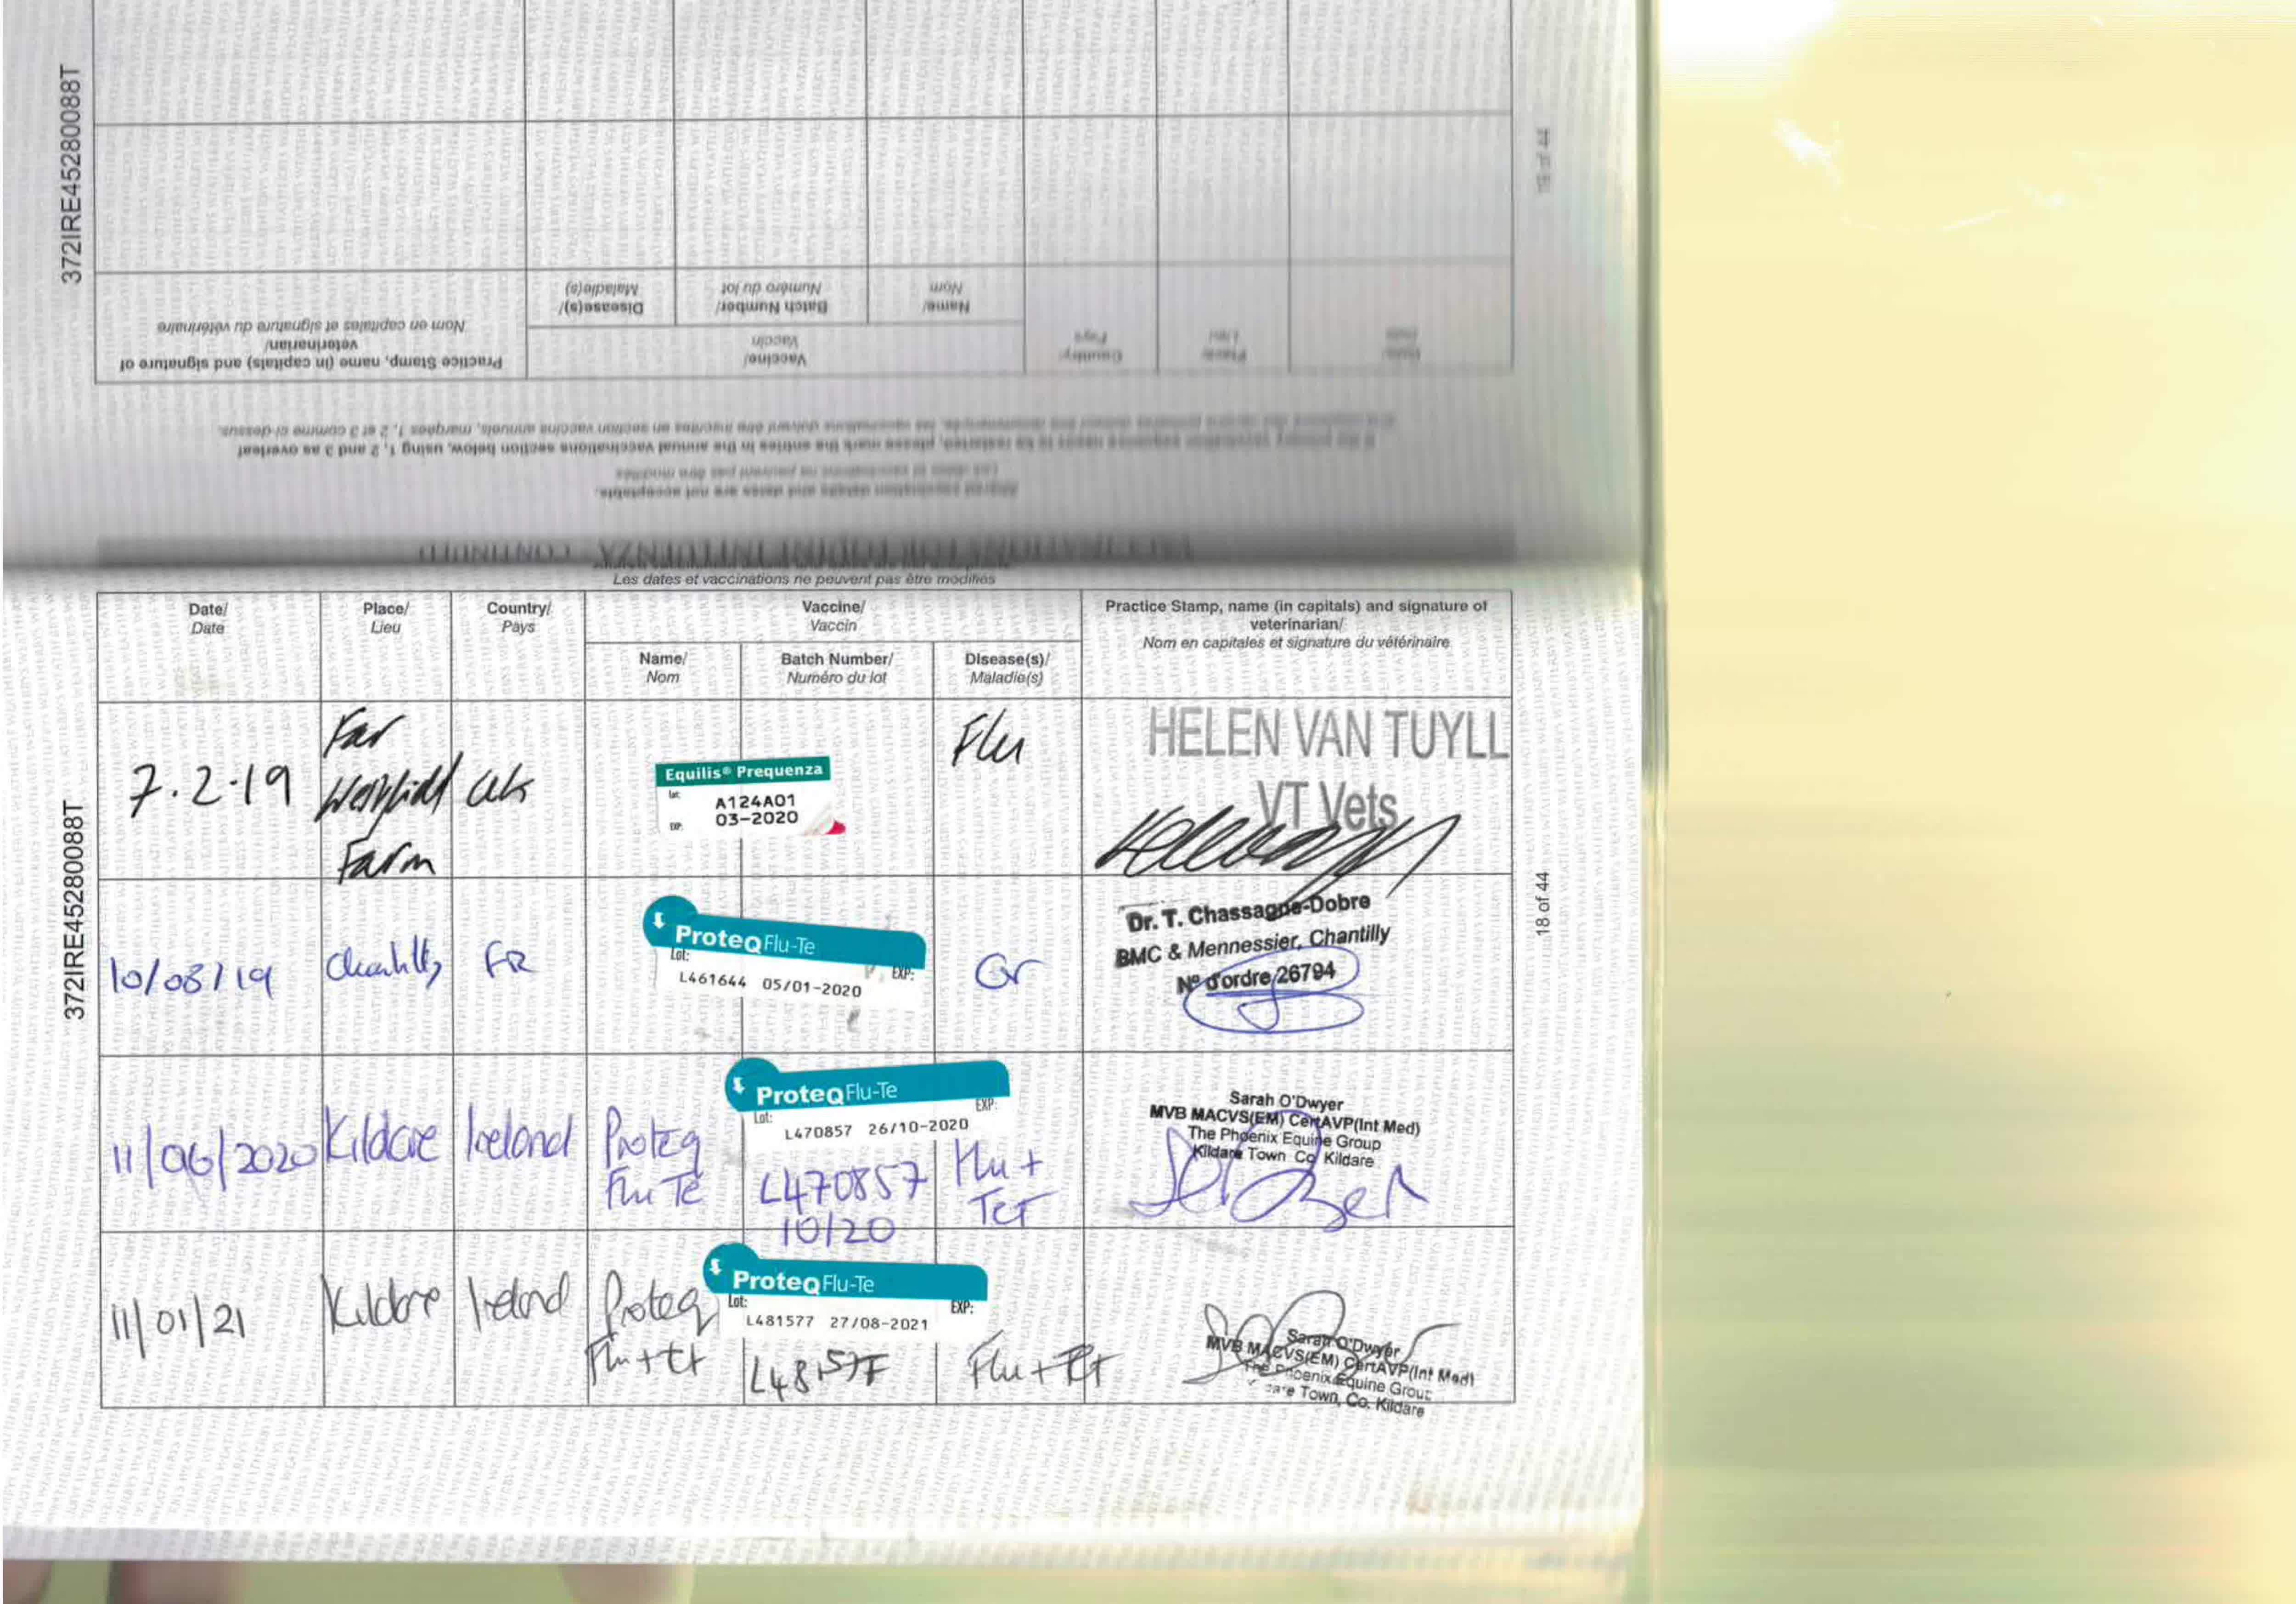 372IRE45280088T
Practice Stamp, name (in capitals) and signature of
veterinarian/
Nom en capitales et signature du vétérinaire
Vaccine/
Vaccin
Disease(s)/
Maladie(s)
Batch Number/
Numéro du lot
Name/
Nom
Country/
Pays
Place/
Lieu
Date/
Date
If the primary vaccination sequence needs to be restarted, please mark the entries in the annual vaccinations section below, using 1, 2 and 3 as overleaf
vaccinations doivent être inscrites en section vaccins annuels, marquées 1, 2 et 3 comme ci-dessus.
Altered vaccination details and dates are not acceptable.
Les dates et vaccinations ne peuvent pas être modifiés
VACCINATIONS FOR EQUINE INFLUENZA - CONTINUED
Les dates et vaccinations ne peuvent pas être modifiés
Date/
Date
Place/
Lieu
Country/
Pays
Vaccine/
Vaccin
Name/
Nom
Batch Number/
Numéro du lot
Disease(s)/
Maladie(s)
Practice Stamp, name (in capitals) and signature of
veterinarian/
Nom en capitales et signature du vétérinaire
7.2.19
Far
Westfield
Farm
UK
Equilis® Prequenza
lot:
A124A01
EXP:
03-2020
Flu
HELEN VAN TUYLL
VT Vets
10/03/19
Chantilly
FR
ProteqFlu-Te
Lot:
EXP:
L461644 05/01-2020
Gr
Dr. T. Chassagne-Dobre
BMC & Mennessier, Chantilly
N° d'ordre 26794
11/06/2020
Kildare
Ireland
Proteq
Flu Te
ProteqFlu-Te
Lot:
EXP:
L470857 26/10-2020
L470857
10/20
Flu +
Tet
Sarah O'Dwyer
MVB MACVS(EM) CertAVP(Int Med)
The Phoenix Equine Group
Kildare Town Co Kildare
11/01/21
Kildare
Ireland
Proteq
Flu + tet
ProteqFlu-Te
Lot:
EXP:
L481577 27/08-2021
L481577
Flu + Tet
Sarah O'Dwyer
MVB MACVS(EM) CertAVP(Int Med)
The Phoenix Equine Group
Town, Co. Kildare
372IRE45280088T
18 of 44